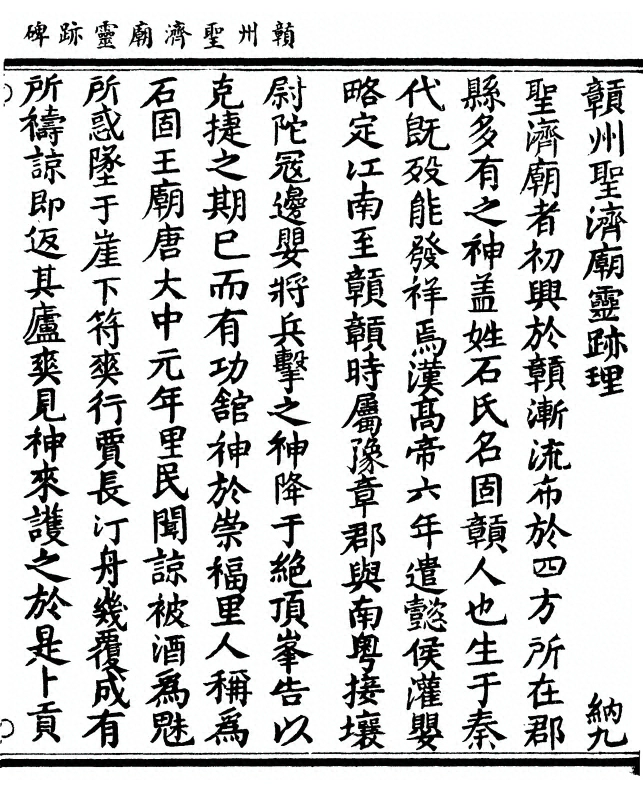 贑州聖濟廟靈跡碑
贑州聖濟廟靈跡理 納九
聖濟廟者初興於贑漸流布於四方所在郡
縣多有之神盖姓石氏名固贑人也生于秦
代既殁能發祥焉漢髙帝六年遣懿侯灌嬰
略定江南至贑贑時屬豫章郡與南粤接壤
尉陀冦邊嬰將兵擊之神降于絶頂峯告以
克捷之期巳而有功舘神於崇福里人稱爲
石固王廟唐大中元年里民聞諒被酒爲魅
所惑墜于崖下符爽行賈長汀舟幾覆咸有
所禱諒即返其廬爽見神來護之於是卜貢